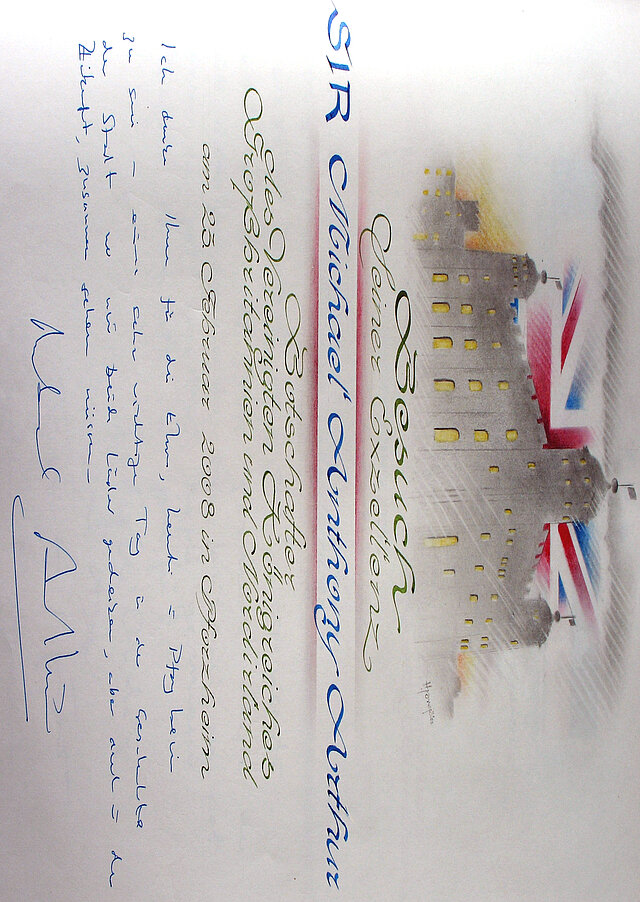 Besuch
Seiner Exzellenz
SIR Michael Anthony Arthur
Botschafter
des Vereinigten Königreiches
Großbritannien und Nordirland
am 25 Februar 2008 in Pforzheim
Ich danke Ihnen für die Ehre, heute in Pforzheim
zu sein – einen sehr wichtigen Tag in der Geschichte
der Stadt wo wir beide Länder gedenken, aber auch in der
Zukunft, zusammen sehen müssen